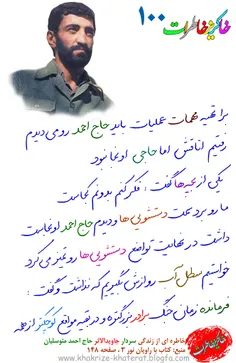 خاکریز خاطرات ۱۰۰
برا تهیه مهمات عملیات باید حاج احمد رو می دیدم
رفتیم اتاقش اما حاجی اونجا نبود
یکی از بچه‌ها گفت : فکر کنم بدونم کجاست
ما رو برد سمت دستشویی‌ها و دیدم حاج احمد اونجاست
داشت در نهایت تواضع دستشویی‌ها رو تمیز می‌کرد
خواستیم سطل آب رو ازش بگیریم که نذاشت و گفت :
فرمانده زمان جنگ برادر بزرگتره و در بقیه مواقع کوچکتر از همه
خاطره ای از زندگی سردار جاویدالاثر حاج احمد متوسلیان
منبع: کتاب با راویان نور ۲ ، صفحه ۱۴۸
www.khakrize-khaterat.blogfa.com